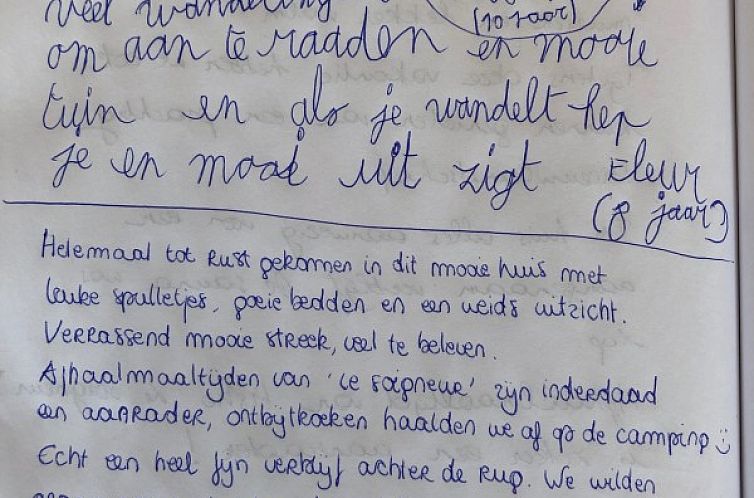 veel wandeling
(10 jaar)
om aan te raaden en mooie
tuin en als je wandelt hep
je en mooi uit zigt Fleur
(8 jaar)
Helemaal tot Rust gekomen in dit mooie huis met
leuke spulletjes, goeie bedden en een weids uitzicht.
Verrassend mooie streek, veel te beleven.
Afhaalmaaltijden van 'le soigneur' zijn inderdaad
een aanrader, ontbijtkoeken haalden we af op de camping :)
Echt een heel fijn verblijf achter de rug. We wilden